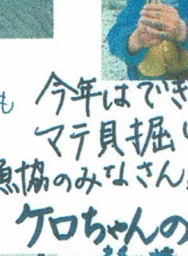 も
今年はでき
マテ貝掘り
漁協のみなさん
ケロちゃんの